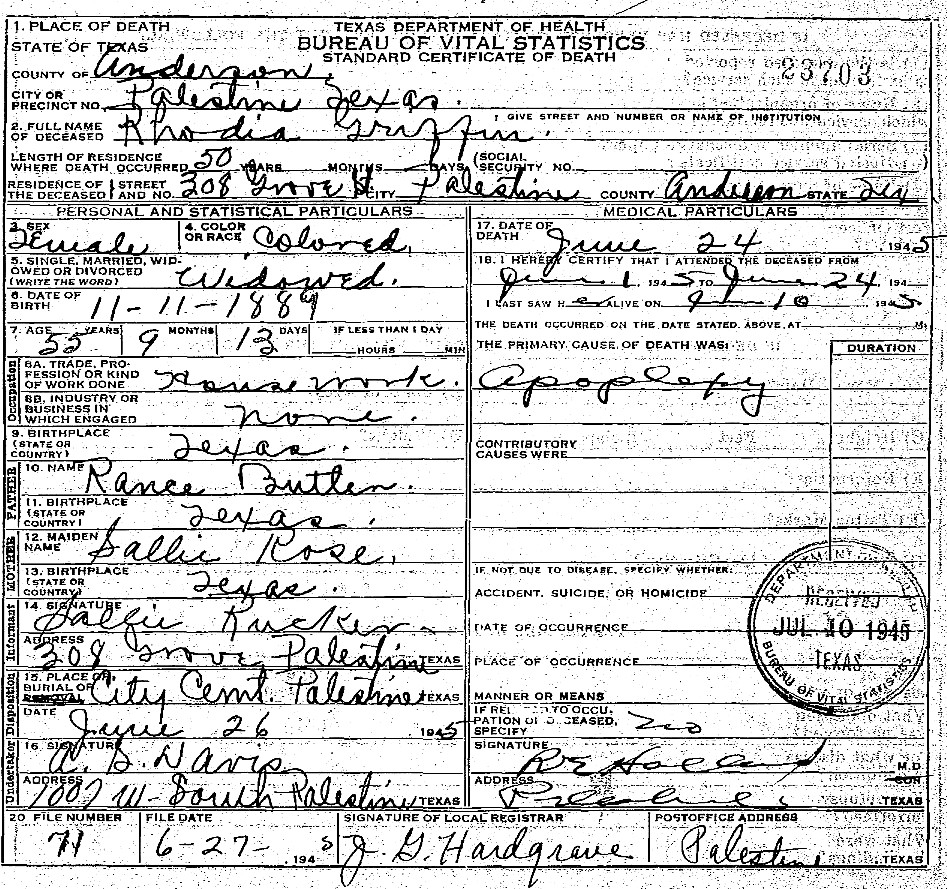 1. PLACE OF DEATH
TEXAS DEPARTMENT OF HEALTH
BUREAU OF VITAL STATISTICS
STANDARD CERTIFICATE OF DEATH
23703
STATE OF TEXAS
COUNTY OF Anderson.
CITY OR PRECINCT NO. Palestine Texas.
GIVE STREET AND NUMBER OR NAME OF INSTITUTION
2. FULL NAME OF DECEASED Rhodia Griffin.
LENGTH OF RESIDENCE WHERE DEATH OCCURRED 50 YEARS MONTHS DAYS (SOCIAL SECURITY NO.
RESIDENCE OF THE DECEASED STREET AND NO. 308 Grove St CITY Palestine COUNTY Anderson STATE Tex
PERSONAL AND STATISTICAL PARTICULARS
3. SEX Female
4. COLOR OR RACE Colored,
5. SINGLE, MARRIED, WIDOWED OR DIVORCED (WRITE THE WORD) Widowed.
6. DATE OF BIRTH 11-11-1889
7. AGE 55 YEARS 9 MONTHS 13 DAYS IF LESS THAN 1 DAY HOURS MIN
Occupation
8A. TRADE, PROFESSION OR KIND OF WORK DONE Housework.
8B. INDUSTRY OR BUSINESS IN WHICH ENGAGED none.
9. BIRTHPLACE (STATE OR COUNTRY) Texas.
FATHER
10. NAME Rance Butler.
11. BIRTHPLACE (STATE OR COUNTRY) Texas.
MOTHER
12. MAIDEN NAME Sallie Rose,
13. BIRTHPLACE (STATE OR COUNTRY) Texas.
Informant
14. SIGNATURE Sallie Rucker
ADDRESS 308 Grove, Palestine TEXAS
Disposition
15. PLACE OF BURIAL OR REMOVAL City Cemt. Palestine TEXAS
DATE June 26 1945
Undertaker
16. SIGNATURE A. D. Davis
ADDRESS 1007 W- South Palestine TEXAS
MEDICAL PARTICULARS
17. DATE OF DEATH June 24 1945
18. I HEREBY CERTIFY THAT I ATTENDED THE DECEASED FROM
June 1 1945 TO June 24 194
I LAST SAW HER ALIVE ON June 10 1945
THE DEATH OCCURRED ON THE DATE STATED ABOVE AT M.
THE PRIMARY CAUSE OF DEATH WAS:
DURATION
Apoplexy
CONTRIBUTORY CAUSES WERE
IF NOT DUE TO DISEASE, SPECIFY WHETHER:
ACCIDENT, SUICIDE, OR HOMICIDE
DATE OF OCCURRENCE
PLACE OF OCCURRENCE
MANNER OR MEANS
IF RELATED TO OCCUPATION OF DECEASED, SPECIFY no
SIGNATURE R E Holland M.D.
ADDRESS Palestine TEXAS
DEPARTMENT
RECEIVED
JUL 10 1945
TEXAS
BUREAU OF VITAL STATISTICS
20 FILE NUMBER 71
FILE DATE 6-27- 1945
SIGNATURE OF LOCAL REGISTRAR J. G. Hardgrave
POSTOFFICE ADDRESS Palestine TEXAS